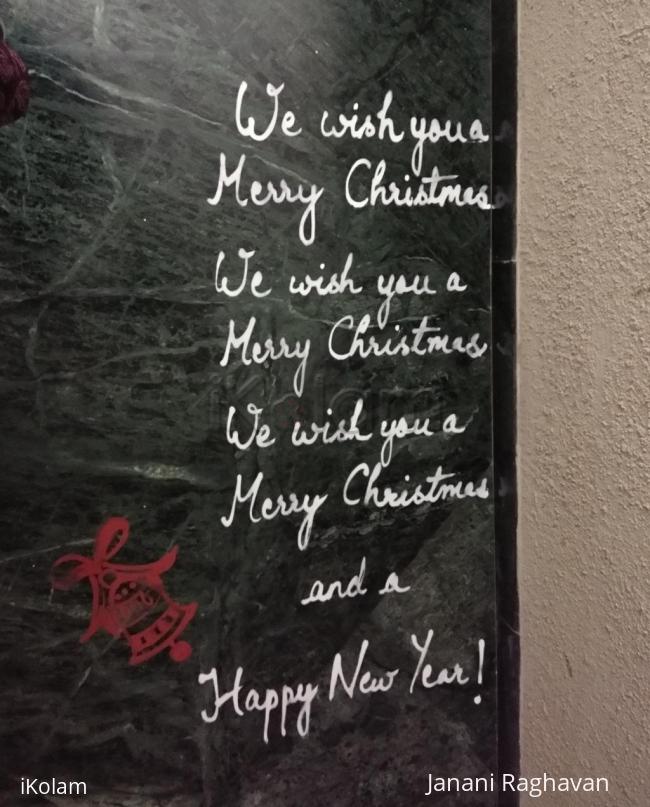 We wish you a
Merry Christmas
We wish you a
Merry Christmas
We wish you a
Merry Christmas
and a
Happy New Year!
iKolam
iKolam
Janani Raghavan